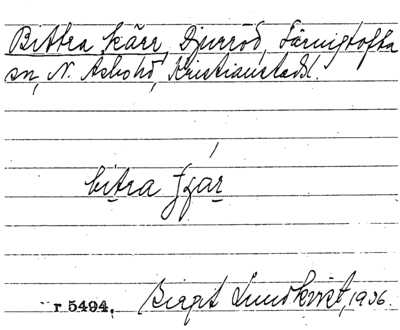 Bittra kärr, Djurröd, Färingtofta
sn, N. Åsbo hd, Kristianstads l.
bitra
r 5494. Birgit Lundkvist, 1936.